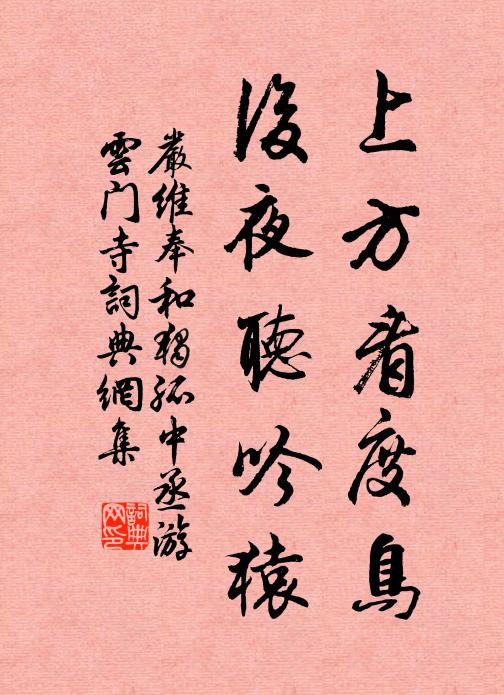 上方看度鳥
後夜聽吟猿
嚴維奉和獨孤中丞游
雲門寺詞典網集
詞典网印